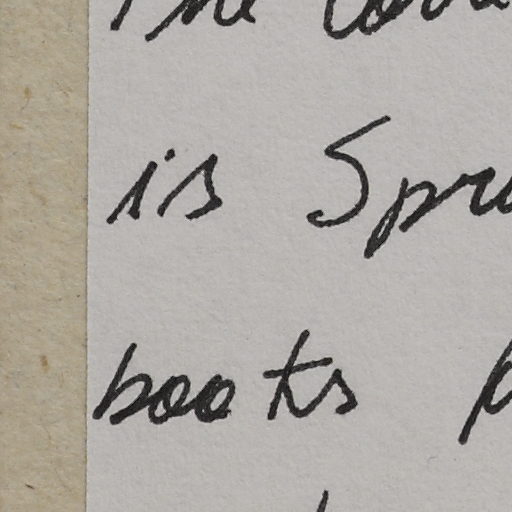 The
is Spr
boots